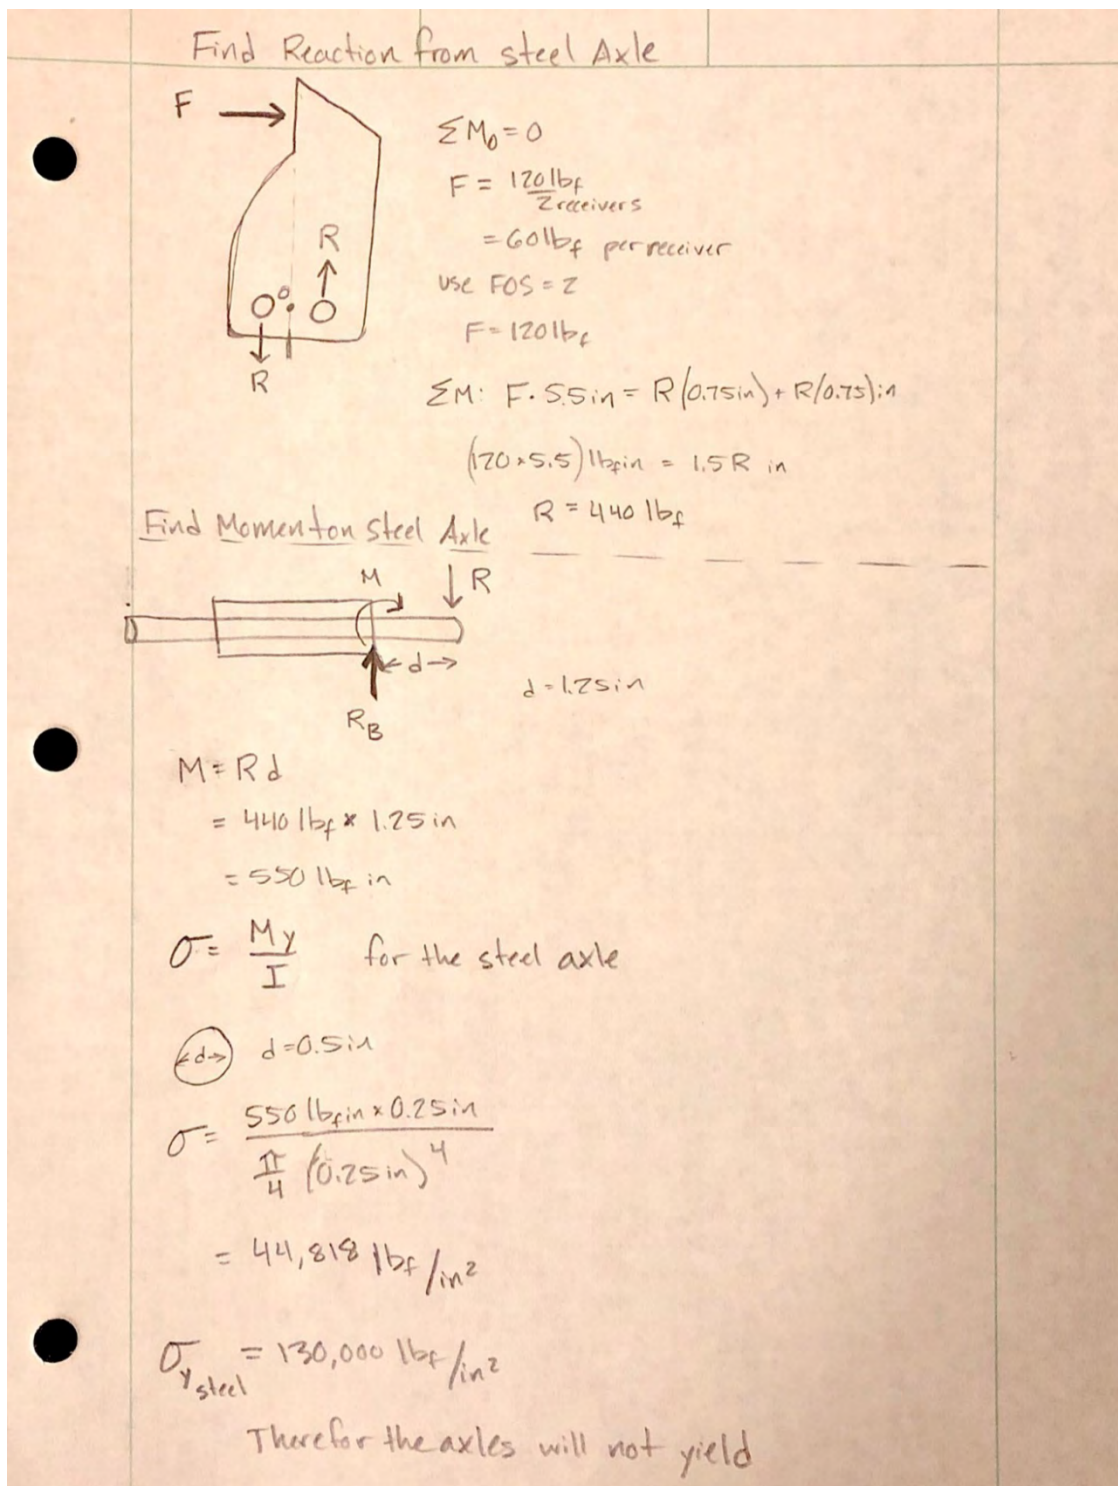 Find Reaction from steel Axle
F
ΣM₀ = 0
F = 120 lbf / 2 receivers
= 60 lbf per receiver
R
use FOS = 2
O
F = 120 lbf
R
ΣM: F · 5.5in = R(0.75in) + R(0.75)in
(120 × 5.5) lbfin = 1.5R in
R = 440 lbf
Find Moment on Steel Axle
M
R
d
d = 1.25in
R_B
M = Rd
= 440 lbf × 1.25 in
= 550 lbf in
σ = My / I for the steel axle
d d = 0.5in
σ = 550 lbfin × 0.25in / π/4 (0.25in)⁴
= 44,818 lbf/in²
σ_y steel = 130,000 lbf/in²
Therefor the axles will not yield